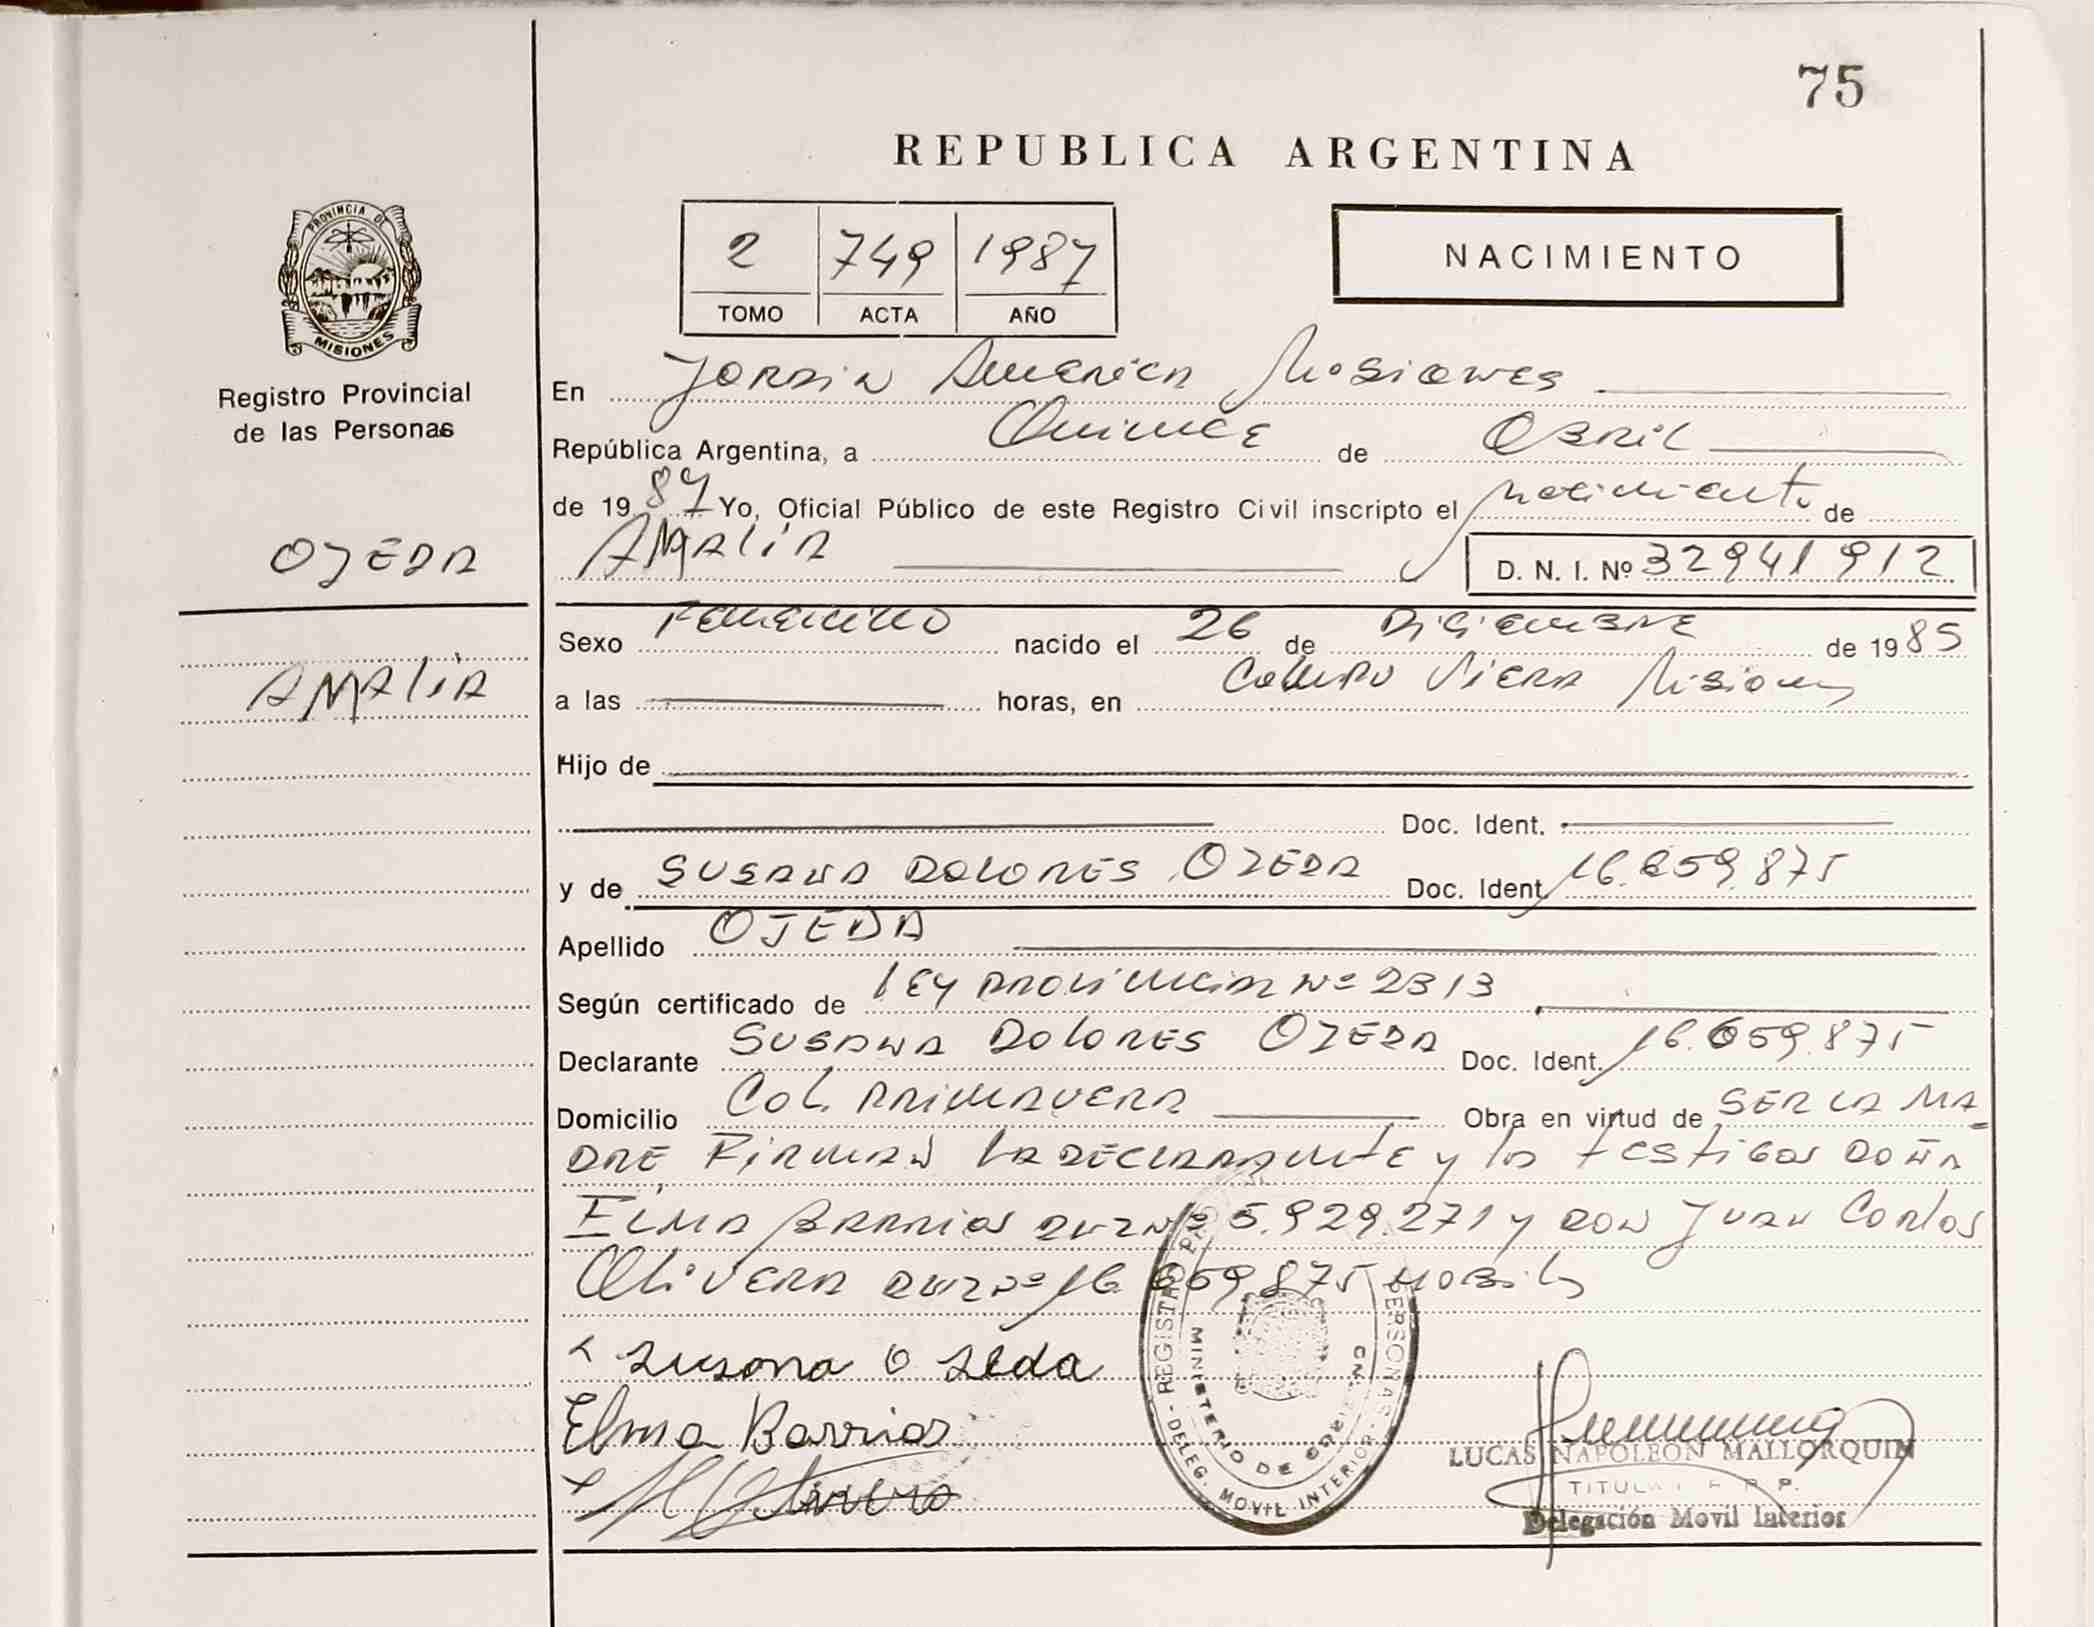 75
REPUBLICA ARGENTINA
PROVINCIA DE
MISIONES
Registro Provincial
de las Personas
OJEDA
AMALIA
2 749 1987
TOMO ACTA AÑO
NACIMIENTO
En Jardin America Misiones
República Argentina, a Quince de Abril
de 1987 Yo, Oficial Público de este Registro Civil inscripto el nacimiento de
AMALIA D. N. I. Nº 32941912
Sexo Femenino nacido el 26 de Diciembre de 1985
a las horas, en Campo Viera Misiones
Hijo de
Doc. Ident.
y de SUSANA DOLORES OJEDA Doc. Ident. 16.659.875
Apellido OJEDA
Según certificado de LEY PROVINCIAL Nº 2313
Declarante SUSANA DOLORES OJEDA Doc. Ident. 16.659.875
Domicilio Col. PRIMAVERA Obra en virtud de SER LA MA
DRE Firman la declarante y los testigos DOÑA
Elma Barrios 5.929.271 y DON Juan Carlos
Olivera 16.659.875
Susana Ojeda
Elma Barrios
REGISTRO PERSONAS - DELEG. MOVIL INTERIOR
MINISTERIO DE
LUCAS NAPOLEON MALLORQUIN
Delegación Movil Interior